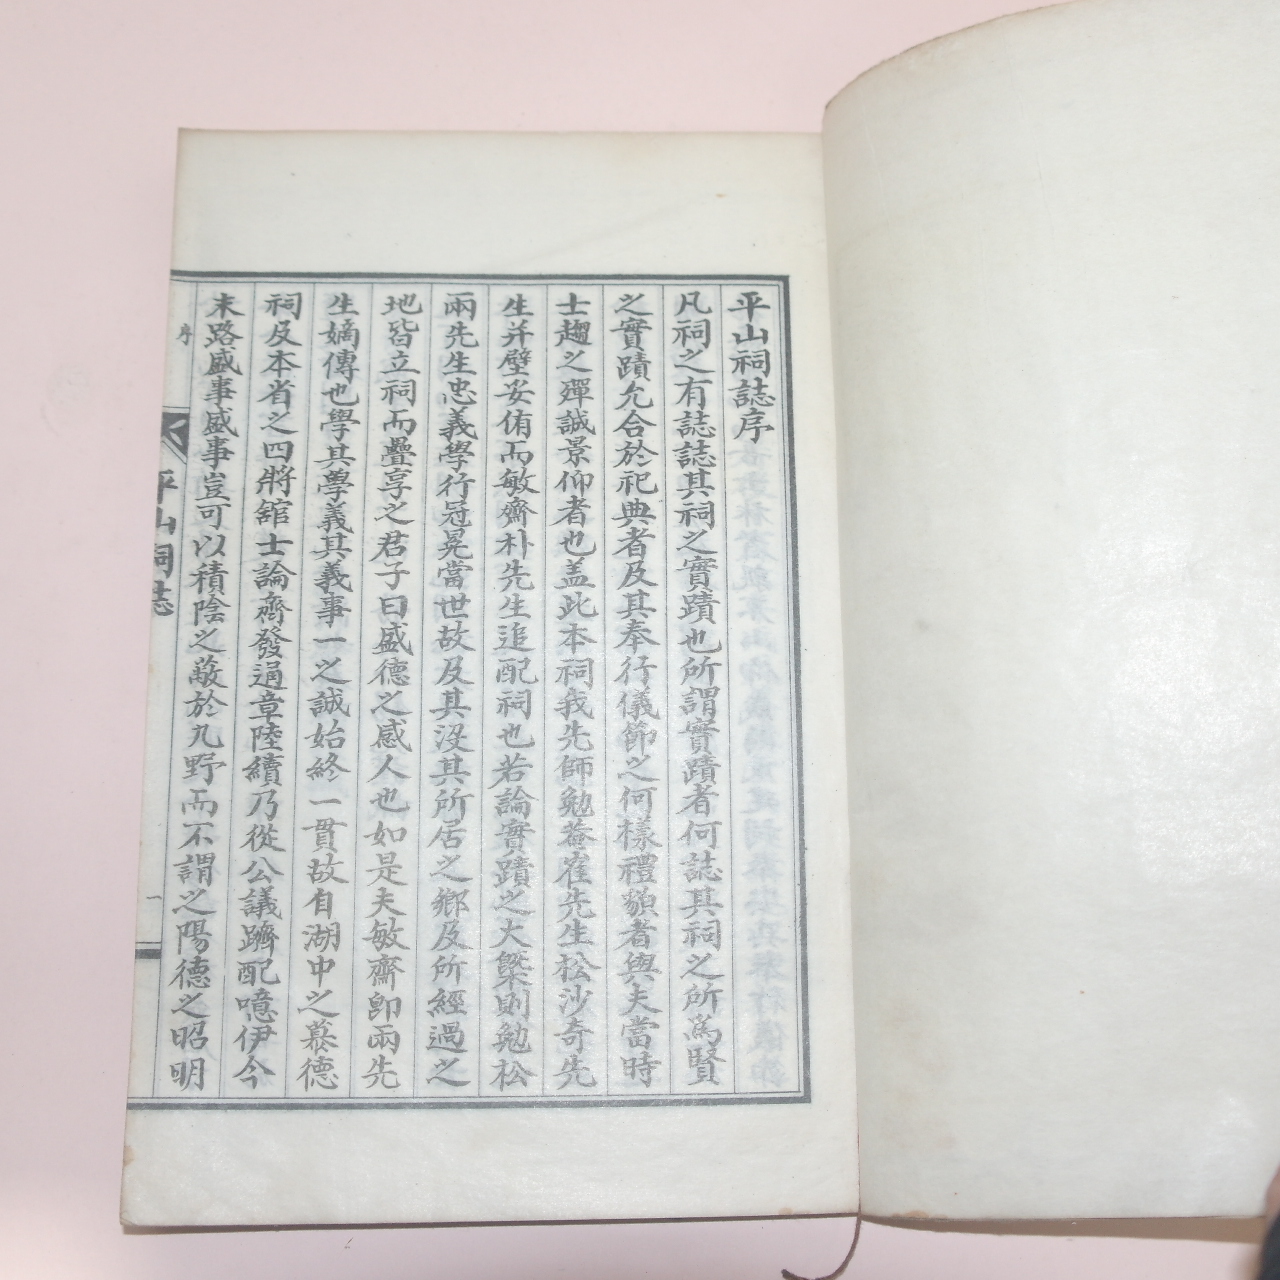 平山祠誌序
凡祠之有誌誌其祠之實蹟也所謂實蹟者何誌其祠之所爲賢
之實蹟允合於祀典者及其奉行儀節之何樣禮貌者與夫當時
士趨之殫誠景仰者也盖此本祠我先師勉菴崔先生松沙奇先
生并壁妥侑而敏齋朴先生追配祠也若論實蹟之大槩則勉松
兩先生忠義學行冠冕當世故及其没其所居之鄕及所經過之
地皆立祠而疊享之君子曰盛德之感人也如是夫敏齋卽兩先
生嫡傳也學其學義其義事一之誠始終一貫故自湖中之慕德
祠及本省之四將舘士論齊發通章陸續乃從公議躋配噫伊今
末路盛事盛事豈可以積陰之蔽於九野而不謂之陽德之昭明
序
平山祠誌
一